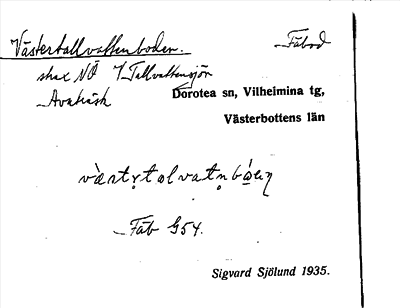 Västertallvattenboden. Fäbod
strax NÖ / Tallvattensjön
Avaträsk
Dorotea sn, Vilhelmina tg,
Västerbottens län
Fäb G54.
Sigvard Sjölund 1935.